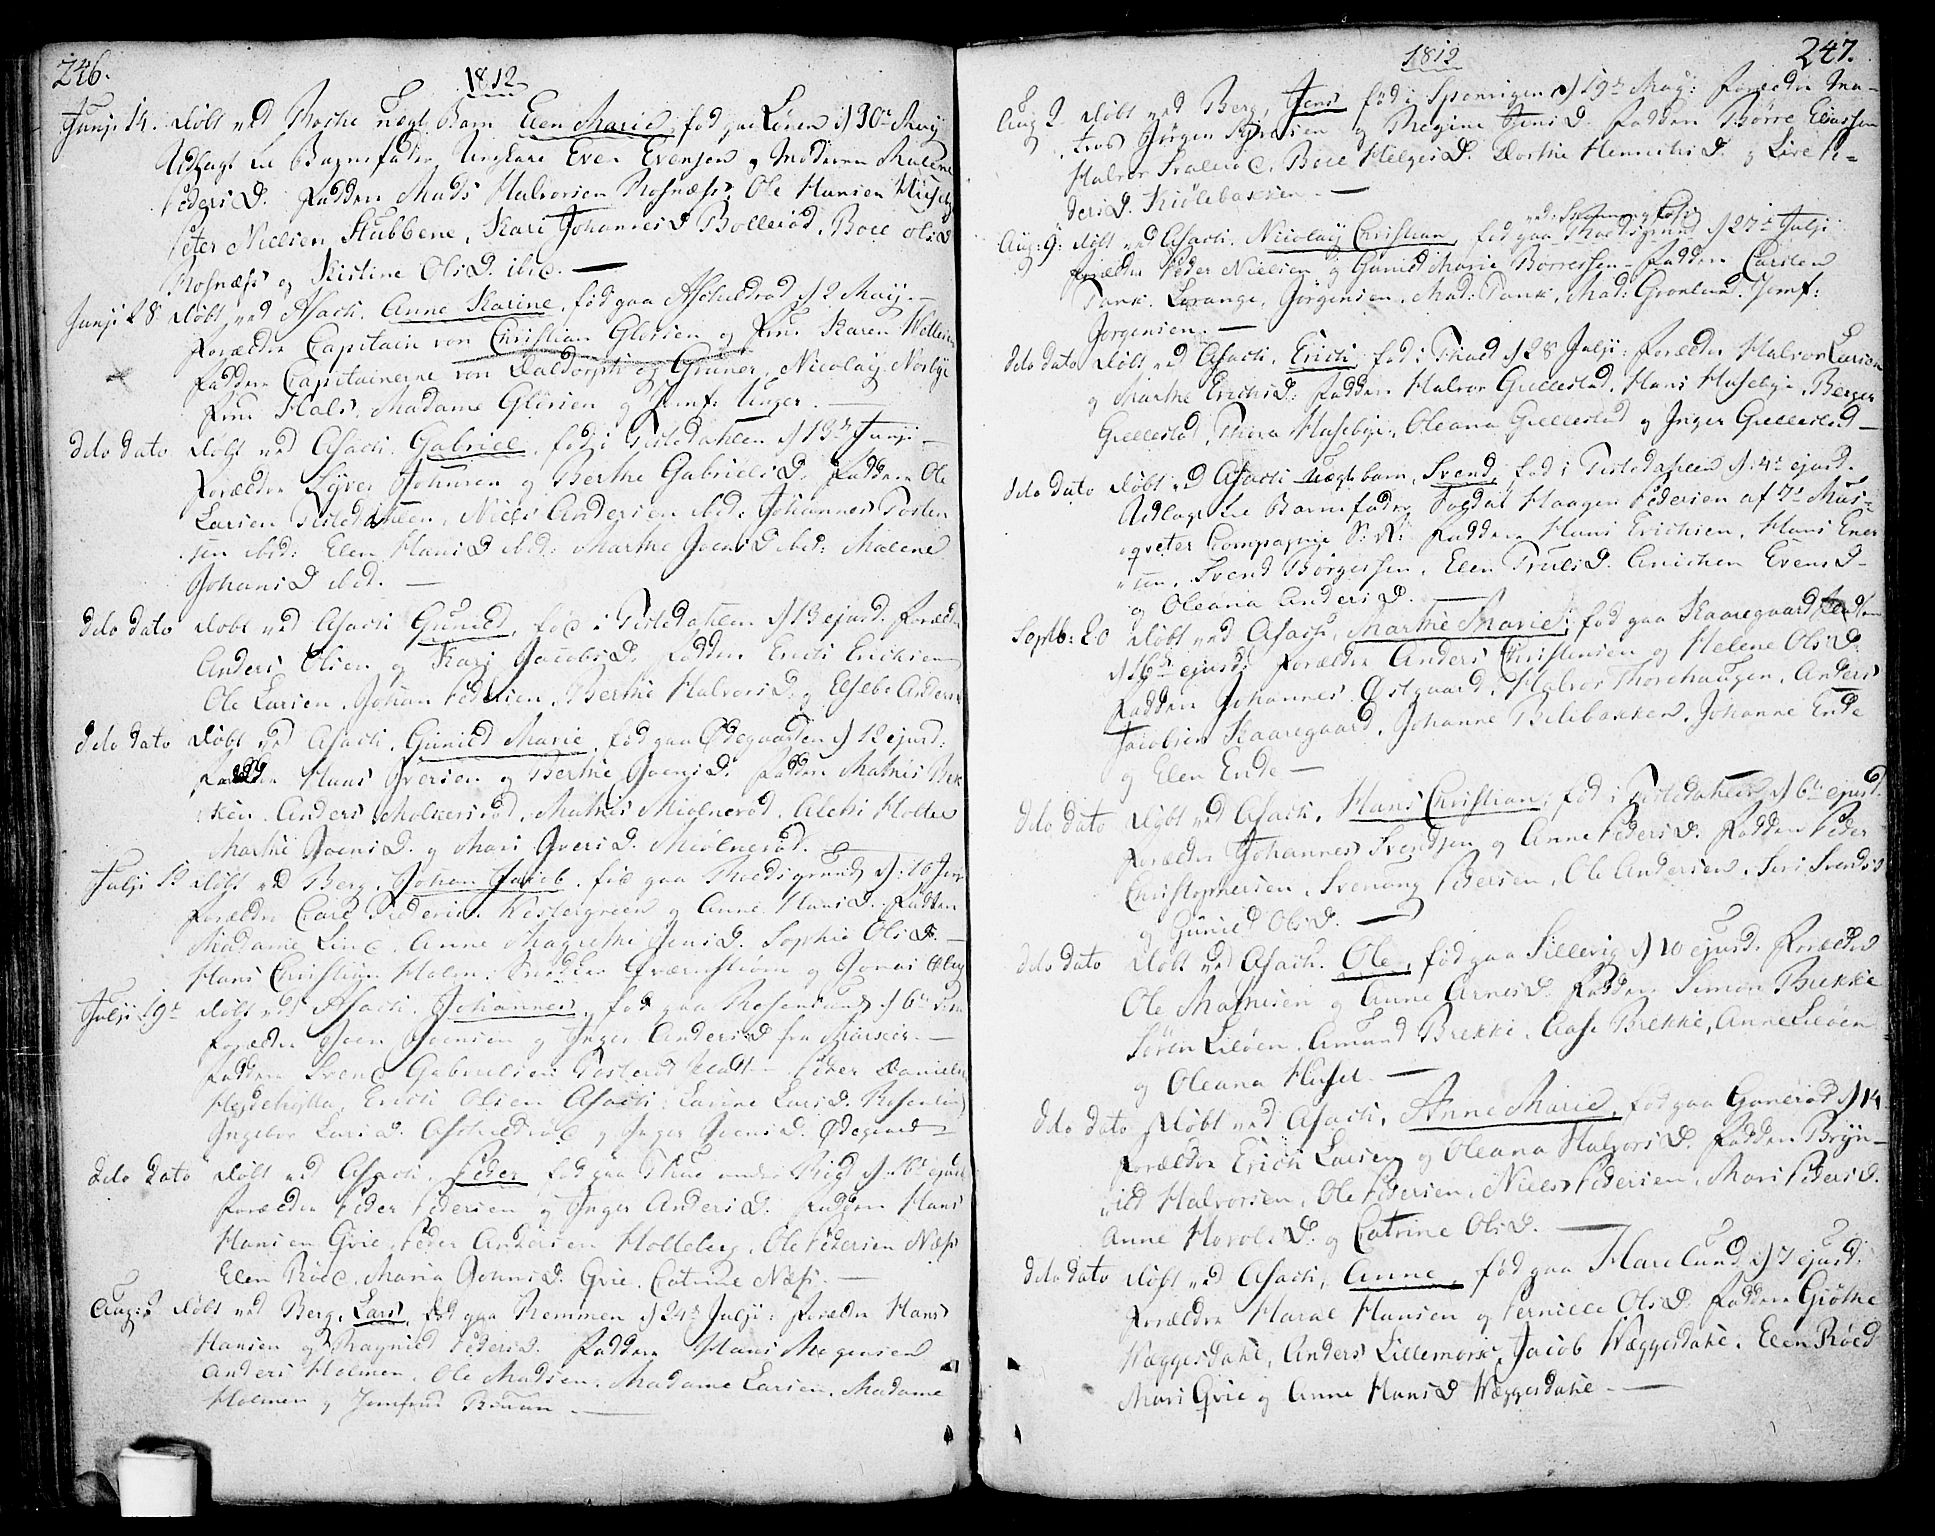 246.
1812
Junji 14. døbt ved Rocke uægte Barn Elen Marie, fød paa Løren d 30te Maij
Udlagt til Barnefader Ungkarl Even Evensen og Moderen Malene
Peders D. Faddere Mads Halvorsen Rosnæss, Ole Hansen
Peter Nielsen Stubbene, Kari Johannes D Bollerød, Boel Ols D
Rosnæss og Kistine Ols D. ibid.
Junji 28 døbt ved Asach. Anne Karine, fød paa Aschulsrød d 2 Maij.
Forældre Capitain von Christian Glosien og Frue Karen
Faddere Capitainerne von Daldorph og Gruner, Nicolaij
Frue Hals, Madame Glosien og Jomf: Unger.
dito dato døbt ved Asach. Gabriel, fød i Tistedahlen d 13de Junji
Forældre Syver Johnsen og Berthe Gabriels D. Faddere Ole
Larsen Tistedahlen, Niels Andersen ibid: Johannes Tosten
sen ibid: Elen Hans D ibid: Marthe Joens D ibid: Malene
Johans D ibid.
dito dato døbt ved Asach Gunild, fød i Tistedahlen d 13 ejusd. Forældre
Anders Olsen og Kari Jacobs D. Faddere Erich Erichsen
Ole Larsen, Johan Pedersen, Berthe Halvors D. og Elsebe Anders
dito dato døbt ved Asach. Gunild Marie, fød paa Ødegaarden d 12 ejusd:
Forældre Hans Iversen og Berthe Joens D. Faddere Mathis Bek
ken, Anders Molkersrød, Mathis Miølnerød, Alethe Holter
Marthe Joens D. og Mari Ivers D. Miølnerød.
Julji 12 døbt ved Berg. Johan Jacob, fød paa Rødsgrund d: 16 Junj
Forældre Carl Frideric Westergreen og Anne Hans D. Faddere
Madame Lind, Anne Magrethe Jens D. Sophie Ols D.
Hans Christian Holm, Snedker Qværnstrøm og Jonas
Julji 19de døbt ved Asach. Johannes, fød paa Rosenlund d 6te
Forældre Joen Joensen og Inger Anders D fra
Faddere Svend Gabrielsen Tosterød, Peder Danielsen
Heydehytta, Erich Olsen Asach, Larine Lars D. Rosenlund
Ingebor Lars D. Aschulsrød og Inger Joens D. Ødegaard
dito dato døbt ved Asach. Peder fød paa Stue under Rød d. 16de ejusd
Forældre Peder Pedersen og Inger Anders D. Faddere Hans
Hansen Qvie, Peder Andersen Holleberg, Ole Pedersen Næss
Elen Røed, Maria Johns D. Qvie, Catrine Næss.
Aug: 2 døbt ved Berg, Lars, fød paa Remmen d 24de Julji: Forældre Hans
Hansen og Ragnild Peders D. Faddere Hans Mogensen
Anders Holmen, Ole Madsen, Madame Larsen, Madame
Holmen og Jomfrue Bruun
1812
247.
Aug 2 døbt ved Berg, Jens fød i Sponvigen d 19de Maij: Forældre Ma-
tros Jørgen Syversen og Regine Jens D. Faddere Børre Eliassen
Halvor Svalerød, Boel Helges D. Dorthe Henrichs D. og Live Pe-
ders D. Kiølebakken.
Aug: 9. døbt ved Asach. Nicolaij Christian, fød paa Rødsgrund d 27de Julji
Forældre Peder Nielsen og Gunild Marie Børresen. Faddere Carsten
Tank, Lorange, Jørgensen, Mad: Tank, Mad: Grønlund, Jomf:
Jørgensen.
dito dato døbt ved Asach. Erich fød i Thad d 28 Julji: Forældre Halvor Larsen
og Marthe Erichs D. Faddere Halvor Gillestad, Hans Husebye, Børger
Gillestad, Thora Husebye, Oleana Gillestad og Inger Gillestad
dito dato døbt ved Asach uægte barn, Svend, fød i Tistedahlen d: 4de ejusd.
Udlagt til Barnefader Soldat Haagen Pedersen af 7de Mus-
qveter Compagnie S: R: Faddere Hans Erichsen, Hans Ener
sen, Svend Børgessen, Elen Truls D. Anichen Evens D
og Oleana Anders D.
Septb: 20 døbt ved Asach, Marthe Marie, fød paa Kaaregaard
d 16de ejusd: Forældre Anders Christensen og Helene Ols D.
Faddere Johannes Østgaard, Halvor Thorehaugen, Anders
Jacobsen Kaaregaard, Johanne Bilebakken, Johanne Ende
og Elen Ende
dito dato døbt ved Asach, Hans Christian, fød i Tistedahlen d 6te ejusd.
Forældre Johannes Svendsen og Anne Peders D. Faddere Peder
Christophersen, Svenung Pedersen, Ole Andersen, Siri Svends D
og Gunild Ols D.
dito dato døbt ved Asach. Ole, fød paa Sillevig d 10 ejusd: Forældre
Ole Mathisen og Anne Arnes D. Faddere Simon Brekke
Søren Liløen, Amund Brekke, Aase Brekke, Anne Liløen
og Oleana Husel.
dito dato døbt ved Asach, Anne Marie, fød paa Gonerød d 14
Forældre Erich Larsen og Oleana Halvors D. Faddere Brÿn-
ild Halvorsen, Ole Pedersen, Niels Pedersen, Mari Peders D.
Anne Harols D. og Catrine Ols D.
dito dato døbt ved Asach, Anne, fød paa Harelund d 7 ejusd:
Forældre Haral Hansen og Pernille Ols D. Faddere Grøthe
Væggesdahl, Anders Lillemork, Jacob Wæggesdahl, Elen Røed
Mari Qvie og Anne Hans D Wæggesdahl.